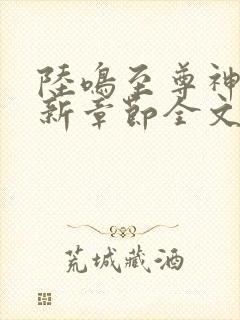 陸鳴至尊神
新章節全文
荒城藏酒